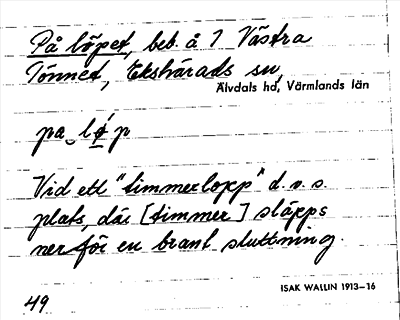 På löpet, beb. å 7 Västra
Tönnet, Ekshärads sn,
Älvdals hd, Värmlands län
pa lǿp
Vid ett "timmerlopp" d.v.s.
plats, där [timmer] släpps
ner för en brant sluttning.
ISAK WALLIN 1913–16
49